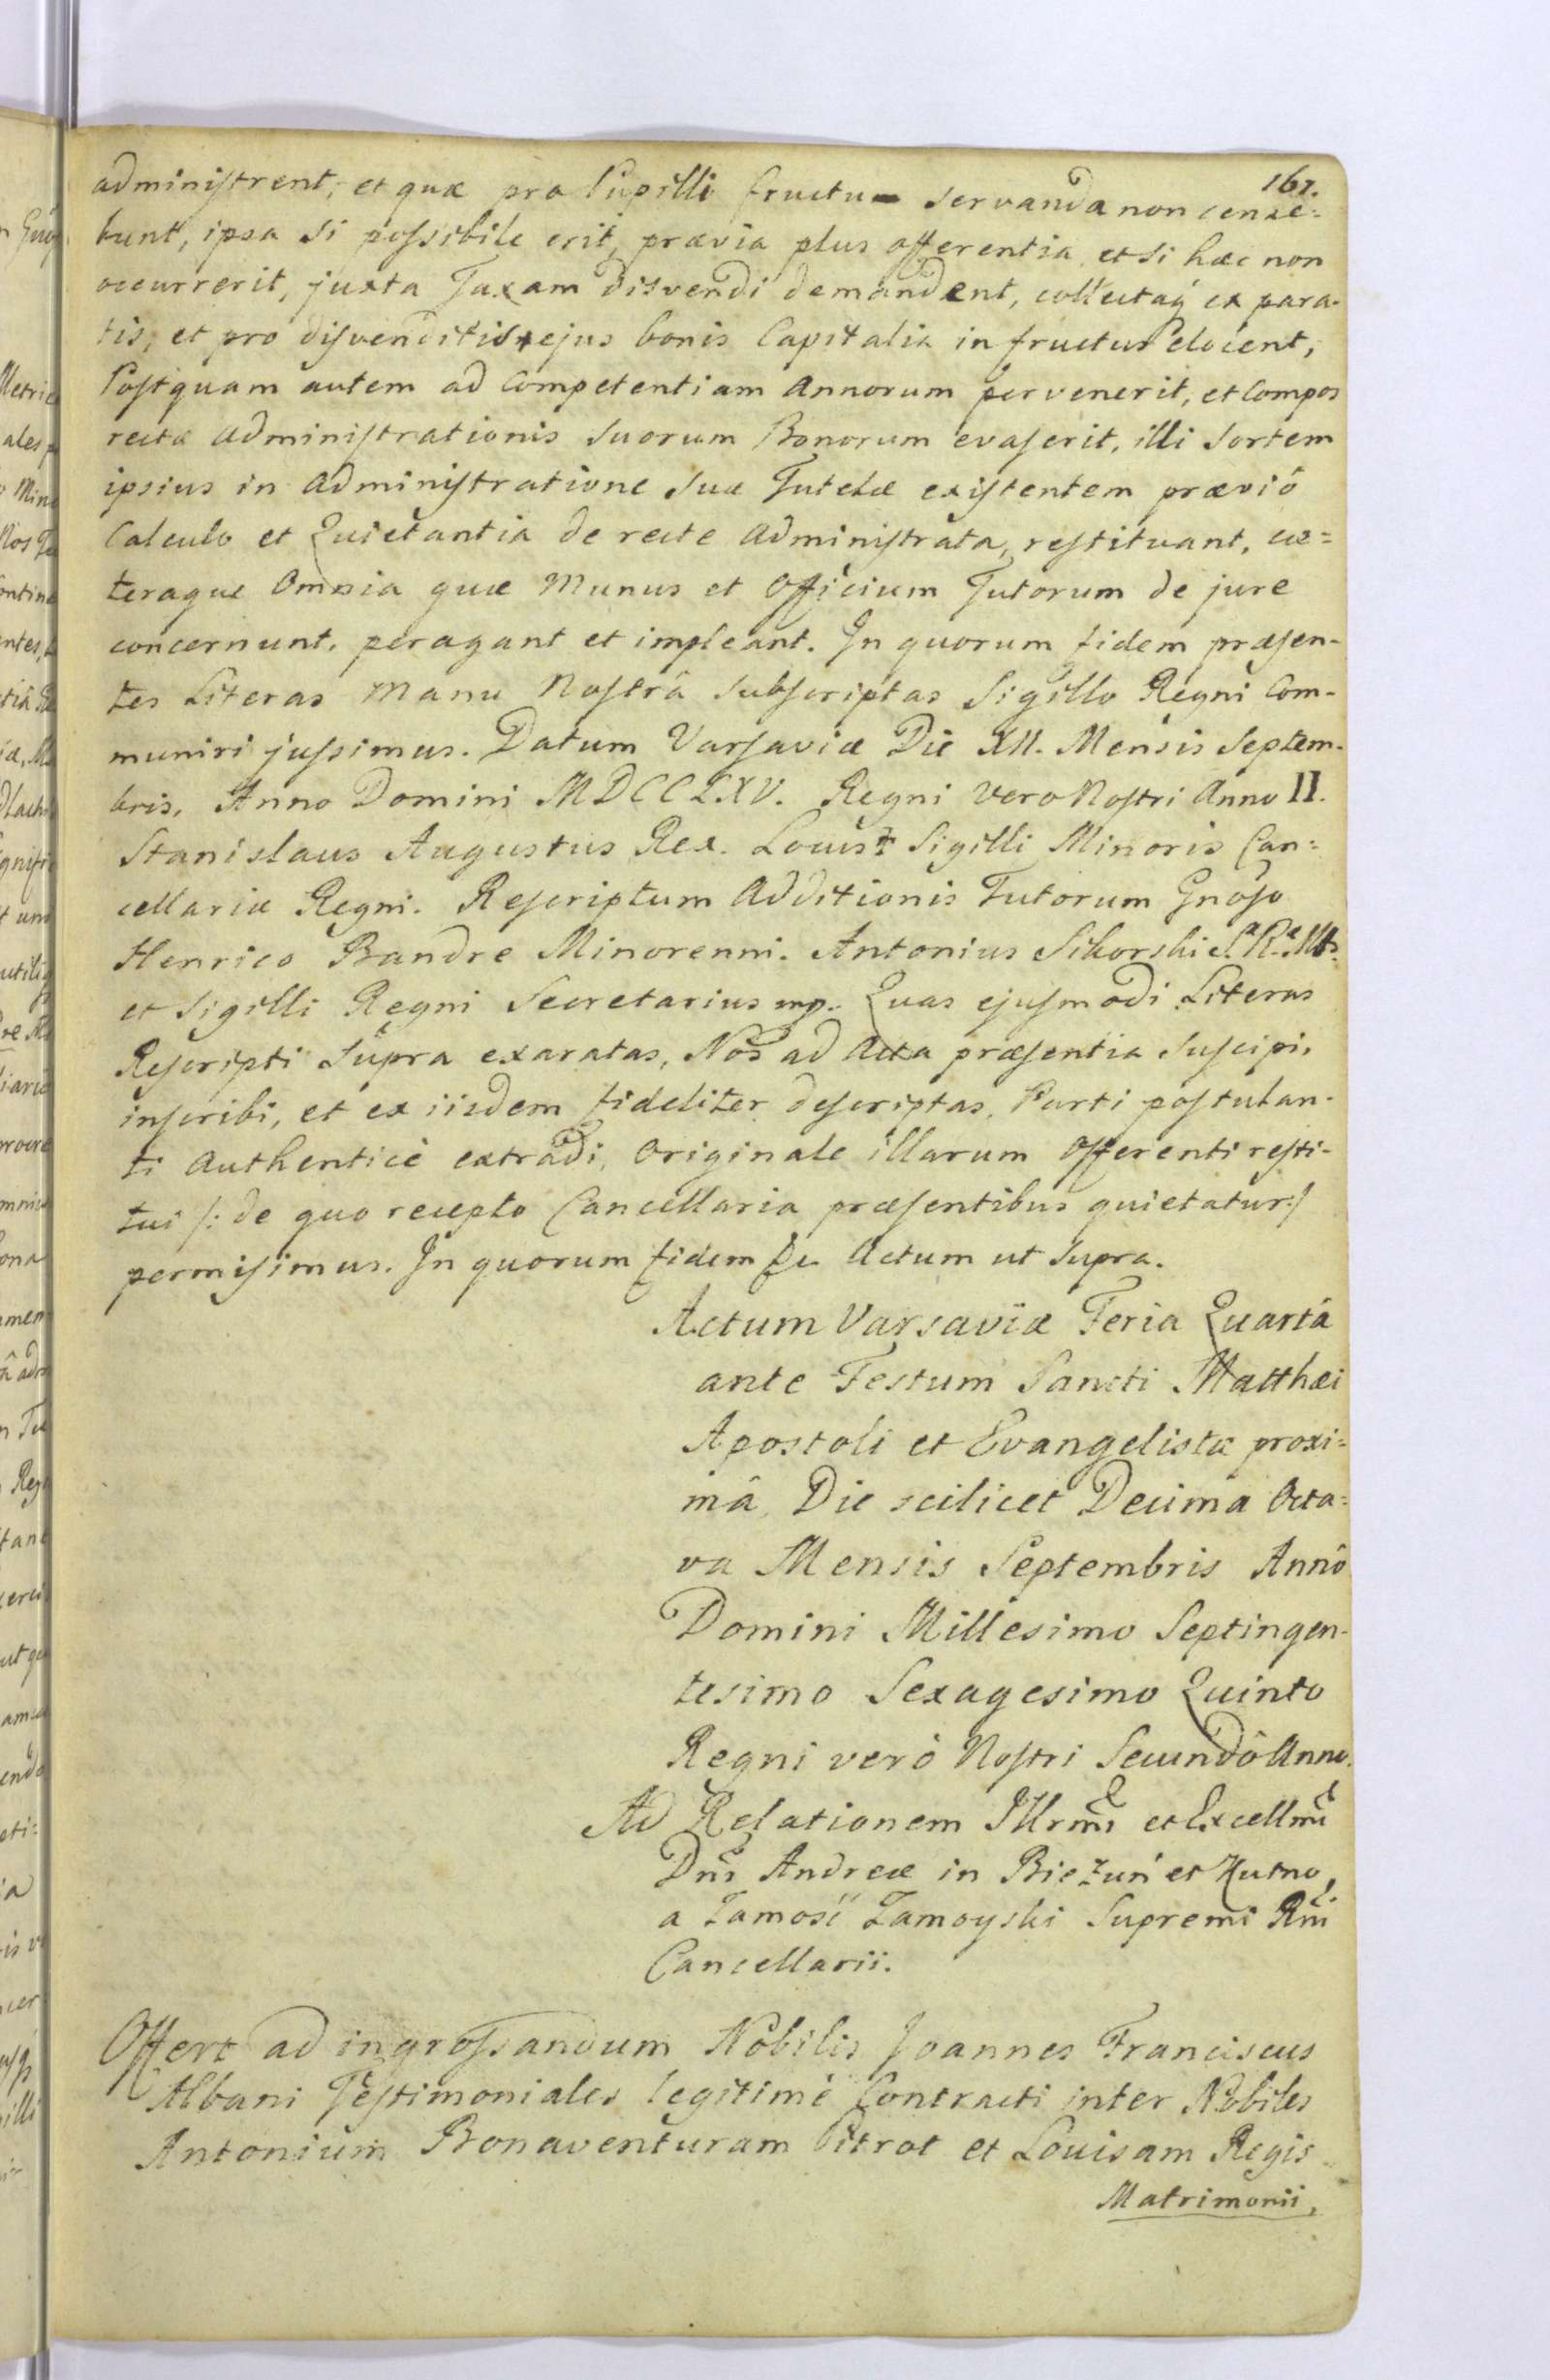 161.
administrent, et quæ pro Pupilli fructu servanda non cense=
bunt, ipsa si possibile erit, prævia plus offerentia, et si hæc non
occurrerit, juxta Taxam disvendi demandent, collectaq̃ ex para-
tis, et pro disvenditis ejus bonis Capitalia in fructus elocent,
Postquam autem ad Competentiam Annorum pervenerit, et Compos
rectæ Administrationis Suorum Bonorum evaserit, illi Sortem
ipsius in Administratione Suæ Tutelæ existentem præviô
Calculo et Quietantia de recte Administrata, restituant, cæ=
teraque Omnia quæ Munus et Officium Tutorum de jure
concernunt, peragant et impleant. In quorum fidem præsen-
tes Literas Manu Nostrâ Subscriptas Sigillo Regni Com-
muniri jussimus. Datum Varsaviæ Die XII. Mensis Septem-
bris, Anno Domini MDCCLXV. Regni Vero Nostri Anno II.
Stanislaus Augustus Rex. Sigilli Minoris Can=
cellariæ Regni. Rescriptum Additionis Tutorum Gnoso
Henrico Bandre Minorenni. Antonius Sikorski S.ᵃR.ᵃMtis
et Sigilli Regni Secretarius mp. Quas ejusmodi Literas
Rescripti Supra exaratas, Nos ad Acta præsentia Suscipi,
inscribi, et ex iisdem fideliter descriptas, Parti postulan-
ti Authenticè extradi, Originale illarum Offerenti resti-
tui /: de quo recepto Cancellaria præsentibus quietatur :/
permisimus. In quorum fidem &c Actum ut Supra.
Actum Varsaviæ Feria Quartâ
ante Festum Sancti Matthæi
Apostoli et Evangelistæ proxi=
mâ, Die scilicet Decima Octa=
va Mensis Septembris Annô
Domini Millesimo Septingen-
tesimo Sexagesimo Quinto
Regni verò Nostri Secundô Anno.
Ad Relationem Illrmi et Excellmi
Dni Andreæ in Bieżuń et Kutno,
a Zamość Zamoyski Supremi Rni
Cancellarii.
Offert ad ingrossandum Nobilis Joannes Franciscus
Albani Testimoniales legitimè Contracti inter Nobiles
Antonium Bonaventuram Pitrot et Louisam Regis
Matrimonii,